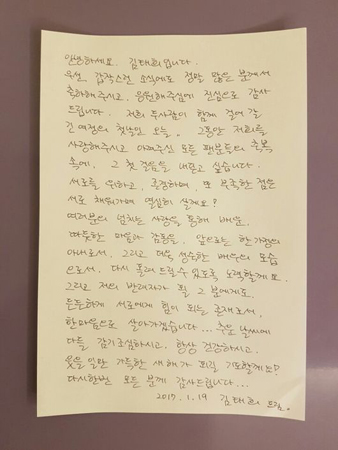 안녕하세요. 김태희입니다.
우선, 갑작스런 소식에도 정말 많은 분께서
축하해주시고, 응원해주심에 진심으로 감사
드립니다. 저희 두사람이 함께 걸어 갈
긴 여정의 첫날인 오늘. 그동안 저희를
사랑해주시고 아껴주신 모든 팬분들의 축복
속에. 그 첫 걸음을 내딛고 싶습니다.
서로를 위하고, 존경하며, 또 부족한 점은
서로 채워가며 열심히 살게요?
여러분의 넘치는 사랑을 통해 배운.
따뜻한 마음과 감동을. 앞으로는 한 가정의
아내로서, 그리고 더욱 성숙한 배우의 모습
으로서. 다시 돌려 드릴 수 있도록 노력할께요.
그리고 저의 반려자가 될 그 분에게도.
든든하게 서로에게 힘이 되는 존재로서.
한마음으로 살아가겠습니다... 추운 날씨에
다들 감기조심하시고. 항상 건강하시고.
웃을 일만 가득한 새해가 되길 기도할께요?
다시한번 모든 분께 감사드립니다...
2017. 1. 19 김태희 드림.